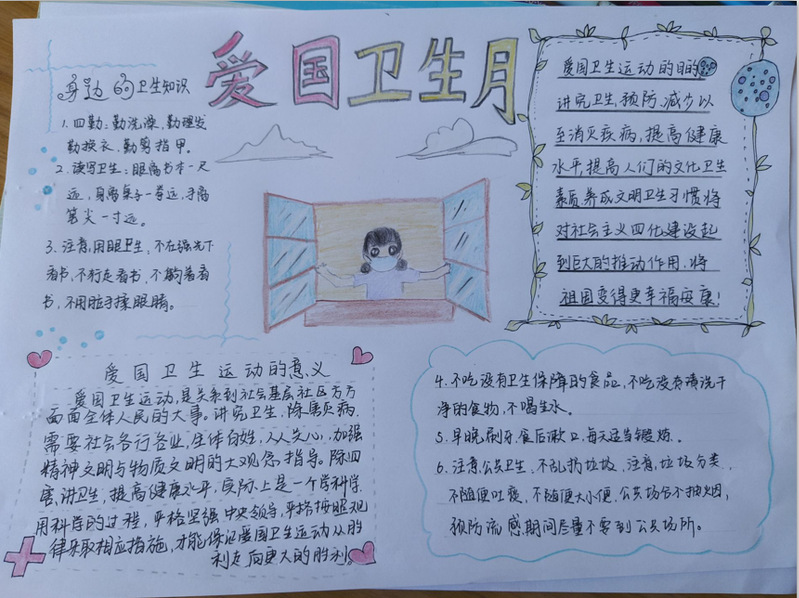 爱国卫生月
身边的卫生知识
1. 四勤：勤洗澡，勤理发
勤换衣，勤剪指甲。
2. 读写卫生：眼离书本一尺
远，身离桌子一拳远，手离
笔尖一寸远。
3. 注意用眼卫生，不在强光下
看书，不行走看书，不躺着看
书，不用脏手揉眼睛。
爱国卫生运动的目的
讲究卫生，预防、减少以
至消灭疾病，提高健康
水平，提高人们的文化卫生
素质养成文明卫生习惯将
对社会主义四化建设起
到巨大的推动作用，将
祖国变得更幸福安康！
爱国卫生运动的意义
爱国卫生运动，是关系到社会基层社区方方
面面全体人民的大事。讲究卫生，除害灭病，
需要社会各行各业，全体百姓，人人关心，加强
精神文明与物质文明的大观念指导。除四
害，讲卫生，提高健康水平，实际上是一个学科学
用科学的过程，严格坚强中央领导，严格按照观
律采取相应措施，才能保证爱国卫生运动从胜
利走向更大的胜利。
4. 不吃没有卫生保障的食品，不吃没有清洗干
净的食物，不喝生水。
5. 早晚刷牙，食后漱口，每天适当锻炼。
6. 注意公共卫生，不乱扔垃圾，注意垃圾分类，
不随便吐痰，不随便大小便，公共场合不抽烟，
预防流感期间尽量不要到公共场所。